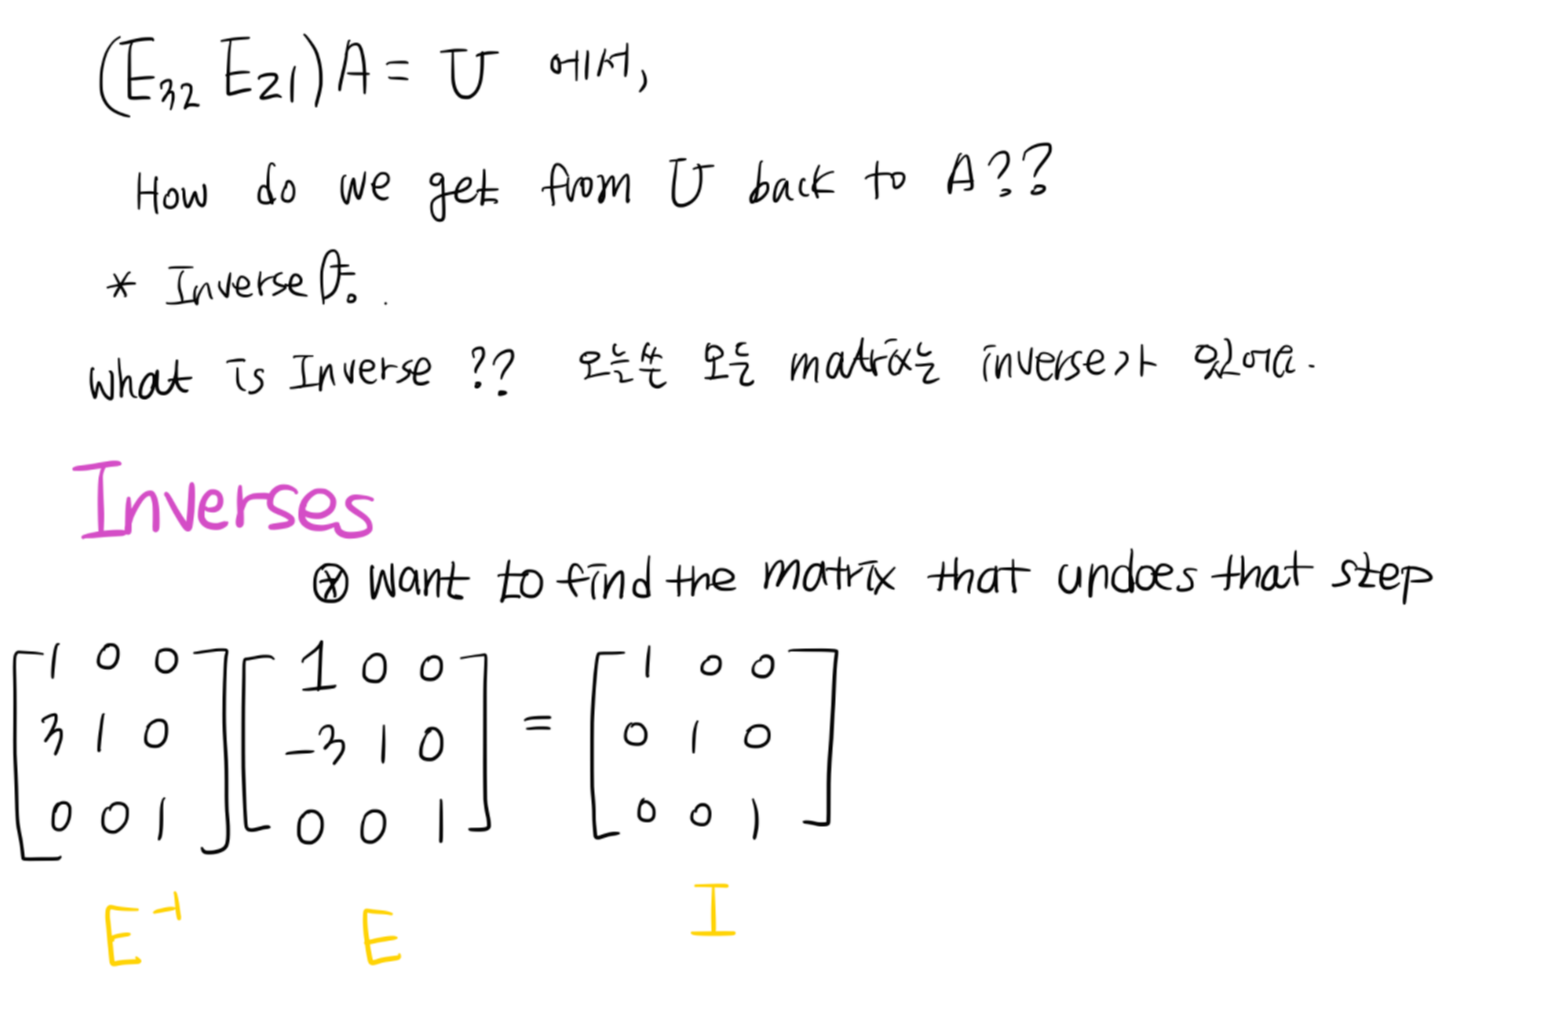 (E₃₂ E₂₁) A = U 에서,
How do we get from U back to A??
* Inverse
What is Inverse ?? 오늘은 모든 matrix는 inverse가 있어요.
Inverses
⊛ want to find the matrix that undoes that step
[1 0 0] [1 0 0] = [1 0 0]
[3 1 0] [-3 1 0] [0 1 0]
[0 0 1] [0 0 1] [0 0 1]
E⁻¹ E I